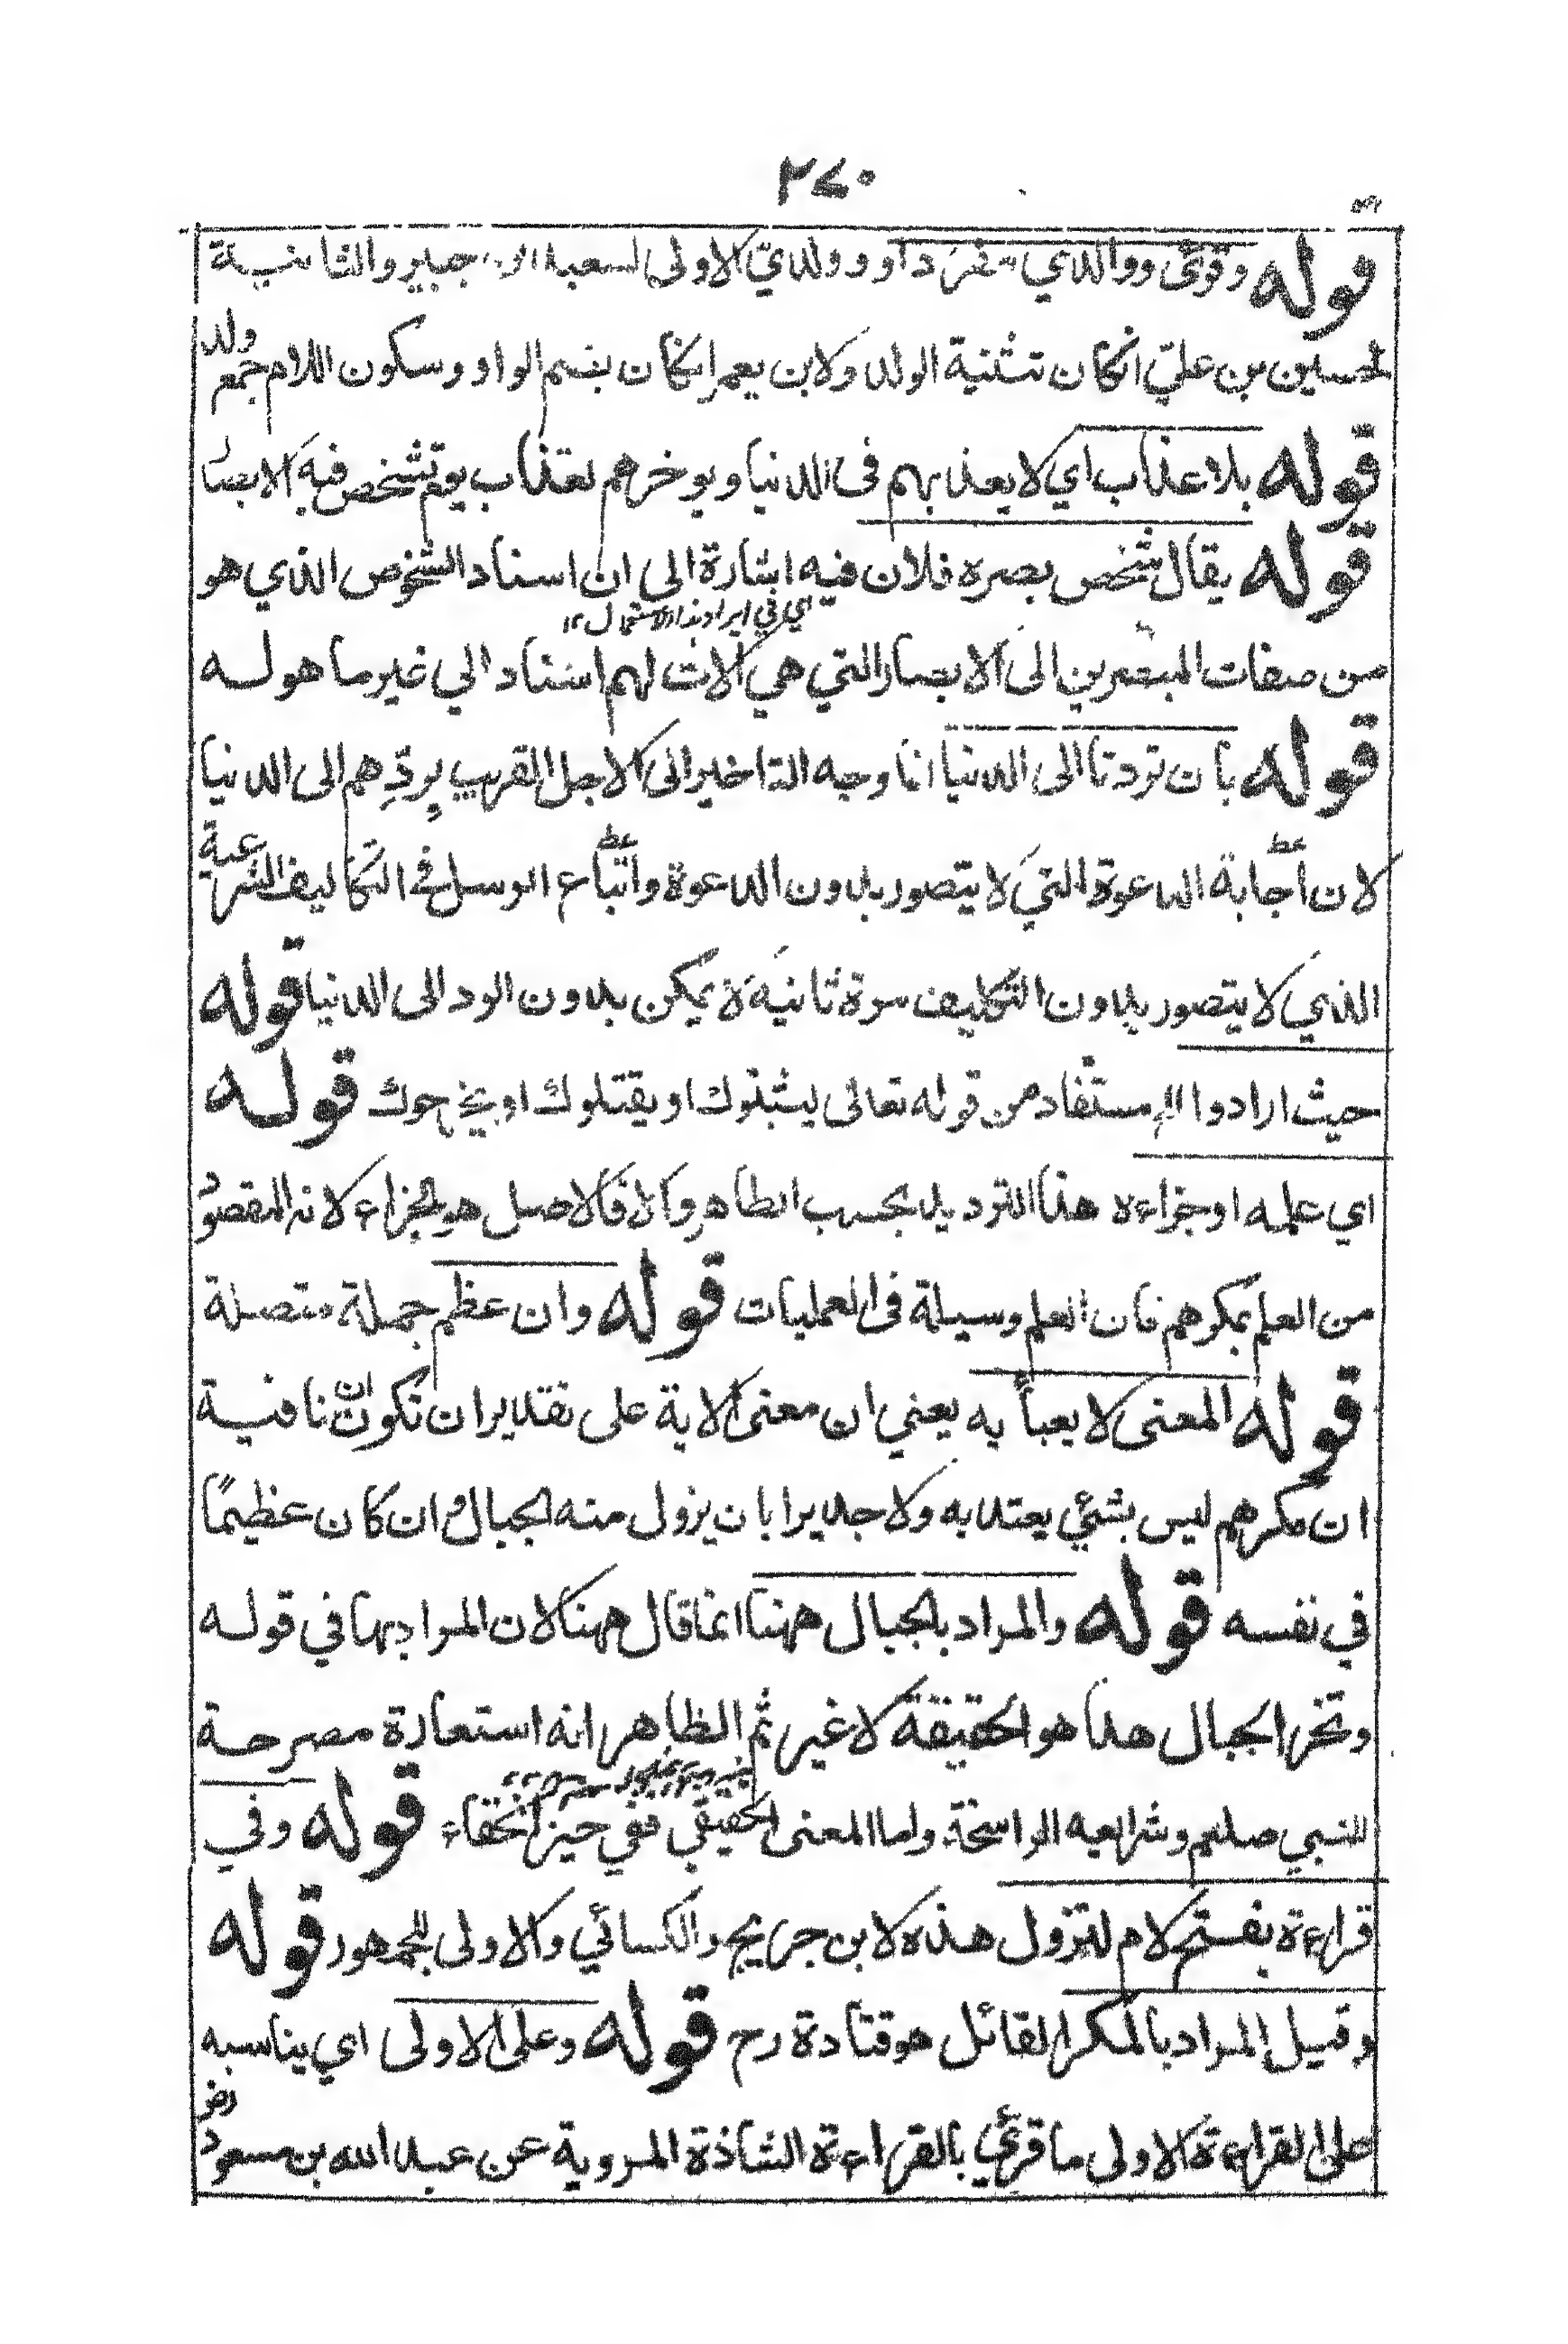 ٢٧٠
قوله وقرئ ووالدي مفردا و وولديّ الاولى لسعيد بن جبير والثانية
لحسين بن عليّ ان كان تثنية الولد ولابن يعمر ان كان بضم الواو وسكون اللام جمع ولد
قوله بلا عذاب اي لا يعذبهم فى الدنيا ويوخرهم لعذاب يوم تشخص فيه الابصار
قوله يقال شخص بصره فلان فيه اشارة الى ان اسناد الشخوص الذي هو
اي في ايراد هذا الاستعمال ١٢
من صفات المبصرين الى الابصار التي هي آلات لهم اسناد الي غير ما هو له
قوله بان تردنا الى الدنيا انا وجه التاخير الى الاجل القريب بردّهم الى الدنيا
لان اجابة الدعوة التي لا يتصور بدون الدعوة واتباع الرسل في التكاليف الشرعية
الذي لا يتصور بدون التكليف مرة ثانية لا يمكن بدون الرد الى الدنيا قوله
حيث ارادوا الخ مستفاد من قوله تعالى ليثبتوك او يقتلوك او يخرجوك قوله
اي علمه او جزاءه هذا الترديد بحسب الظاهر والا فالاصل هو الجزاء لانه المقصود
من العلم بمكرهم فان العلم وسيلة فى العمليات قوله وان عظم جملة متصلة
قوله المعنى لا يعبأ به يعني ان معنى الآية على تقدير ان تكون ان نافية
ان مكرهم ليس بشئي يعتد به ولا جديرا بان يزول منه الجبال و ان كان عظيمًا
في نفسه قوله والمراد بالجبال ههنا انما قال ههنا لان المراد بها في قوله
وتخر الجبال هدا هو الحقيقة لا غير ثم الظاهر انه استعارة مصرحة
للنبي صلعم وشرايعه الراسخة واما المعنى الحقيقي ففي حيز الخفاء قوله وفي
قراءة بفتح لام لتزول هذه لابن جريج والكسائي والاولى للجمهور قوله
وقيل المراد بالمكر القائل هو قتادة رح قوله وعلى الاولى اي يناسبه
على القراءة الاولى ما قرئي بالقراءة الشاذة المروية عن عبد الله بن مسعود رض